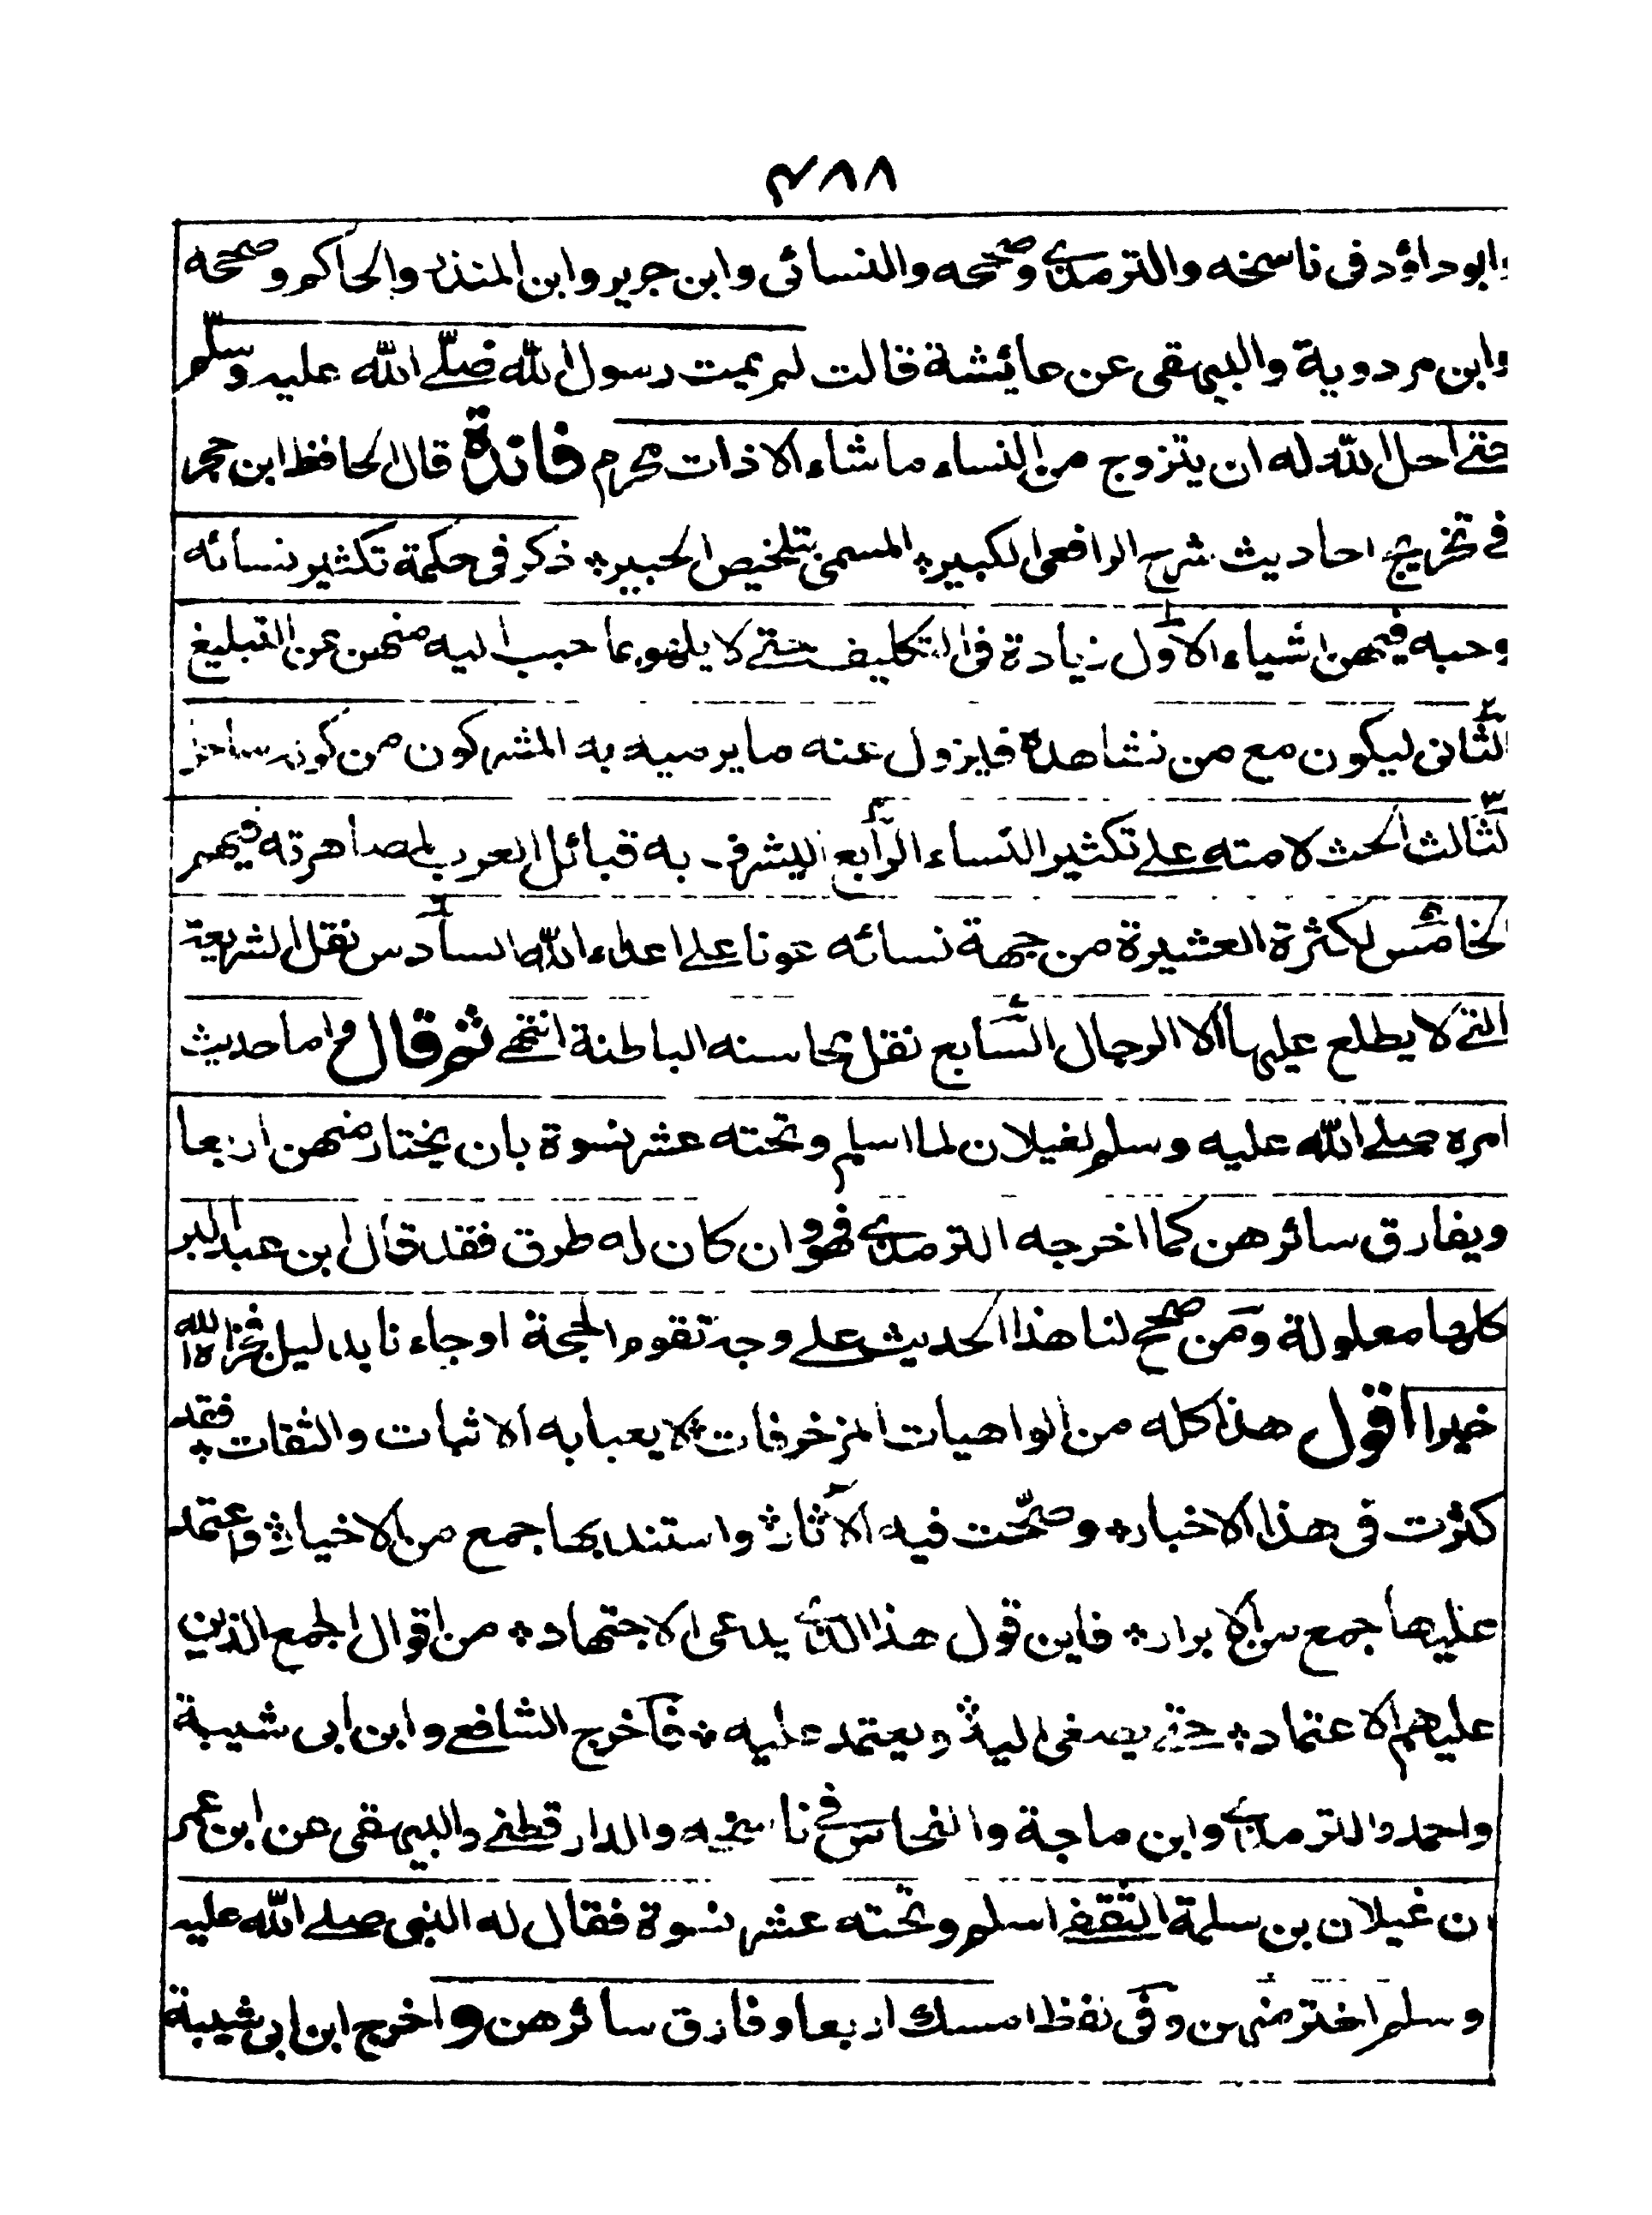 ۴۸۸
وابوداؤد فى ناسخه والترمذى وصححه والنسائى وابن جرير وابن المنذر والحاكم وصححه
وابن مردوية والبيهقى عن عائشة قالت لم يمت رسول الله صلى الله عليه وسلم
حتى احل الله له ان يتزوج من النساء ماشاء الا ذات محرم فائدة قال الحافظ ابن حجر
فى تخريج احاديث شرح الرافعى الكبير؞ المسمى بتلخيص الحبير؞ ذكر فى حكمة تكثير نسائه
وحبه فيهن اشياء الاول زيادة فى التكليف حتى لا يلهو بما حبب اليه منهن عن التبليغ
الثانى ليكون مع من تشاهده فيزول عنه ما يرميه به المشركون من كونه ساحرا
لثالث الحث لامته على تكثير النساء الرابع ليشرف به قبائل العرب لمصاهرته فيهم
الخامس لكثرة العشيرة من جهة نسائه عونا على اعداء الله السادس نقل الشريعة
التى لا يطلع عليها الا الرجال السابع نقل محاسنه الباطنة انتهى ثم قال واما حديث
امره صلى الله عليه وسلم لغيلان لما اسلم وتحته عشر نسوة بان يختار منهن اربعا
ويفارق سائرهن كما اخرجه الترمذى فهو وان كان له طرق فقد قال ابن عبد البر
كلها معلولة ومن صحح لنا هذا الحديث على وجه تقوم الحجة او جاءنا بدليل فجزاه الله
خيرا اقول هذا كله من الواهيات المزخرفات؞ لا يعبا به الاثبات والثقات؞ فقد
كثرت فى هذا الاخبار؞ وصحت فيه الآثار؞ واستند بها جمع من الاخيار؞ واعتمد
عليها جمع من الابرار؞ فاين قول هذا الذى يدعى الاجتهاد؞ من اقوال الجمع الذين
عليهم الاعتماد؞ حتى يصغى اليه؞ ويعتمد عليه؞ فاخرج الشافعى وابن ابى شيبة
واحمد والترمذى وابن ماجة والنحاس فى ناسخه والدارقطنى والبيهقى عن ابن عمر
ان غيلان بن سلمة الثقفى اسلم وتحته عشر نسوة فقال له النبى صلى الله عليه
وسلم اختر منهن وفى لفظ امسك اربعا وفارق سائرهن واخرج ابن ابى شيبة